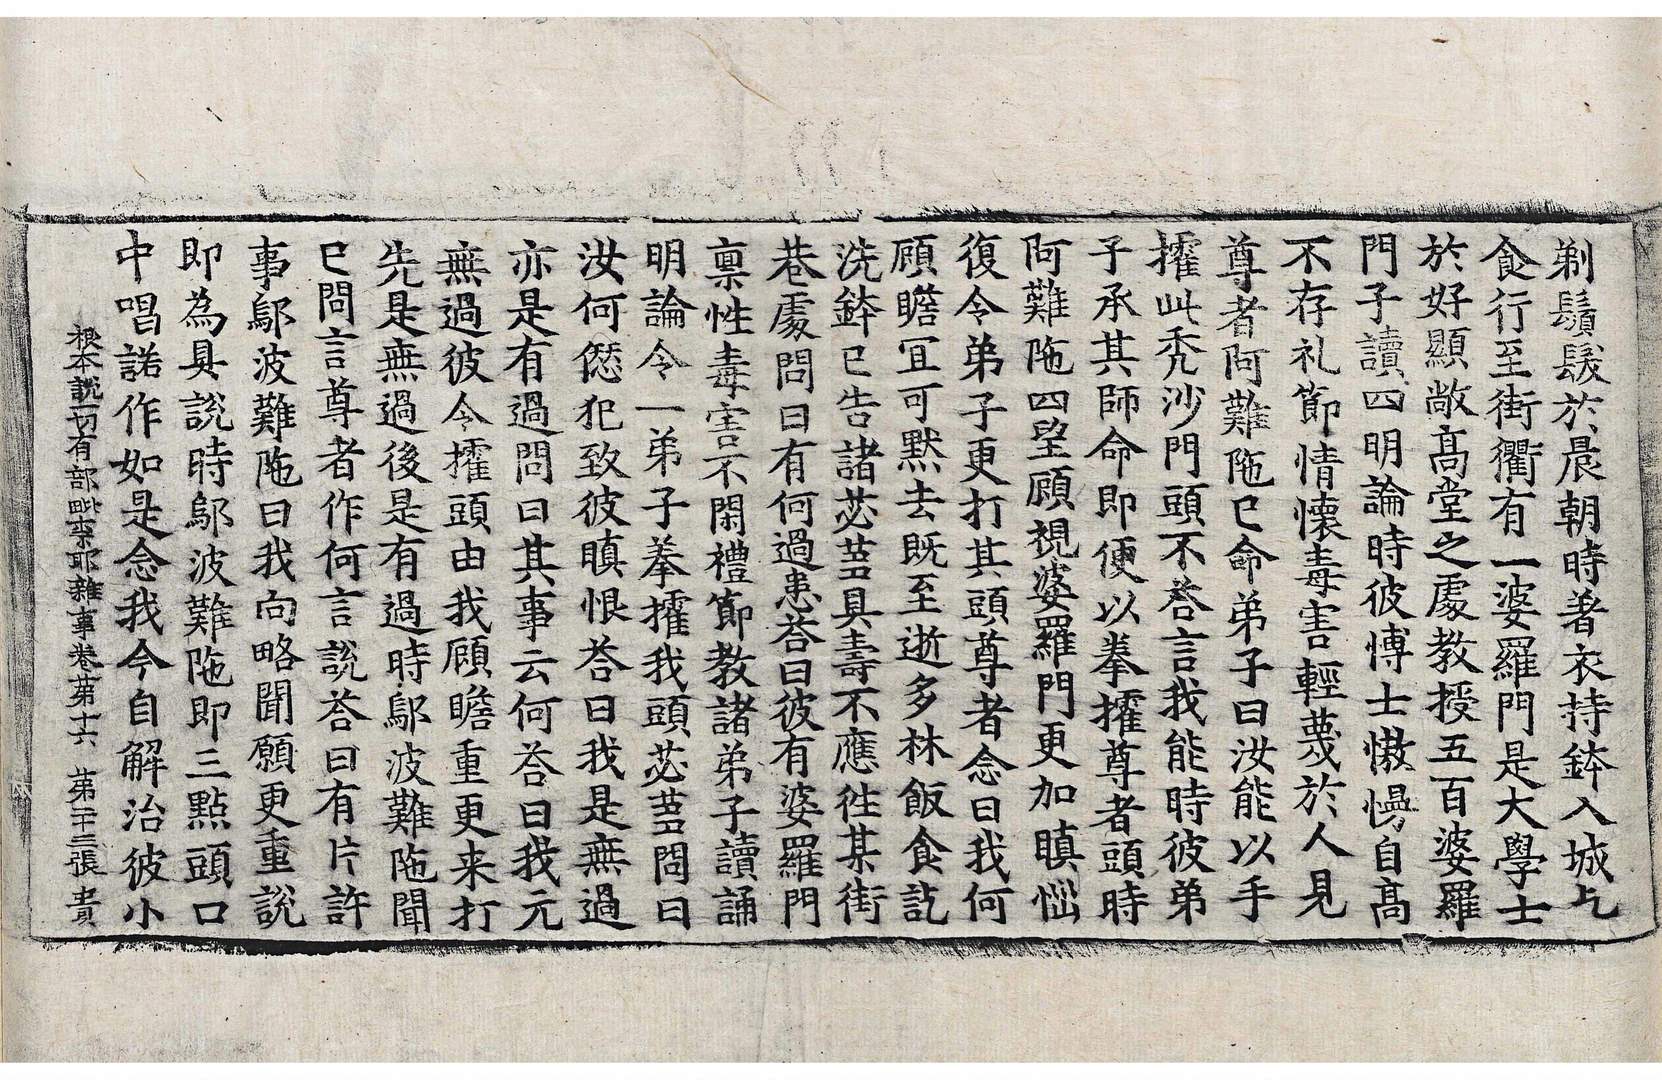 剃鬚髮於晨朝時著衣持鉢入城乞
食行至街衢有一婆羅門是大學士
於好顯敞髙堂之處教授五百婆羅
門子讀四明論時彼博士憿慢自髙
不存礼節情懷毒害輕蔑於人見
尊者阿難陁已命弟子曰汝能以手
㩴此禿沙門頭不荅言我能時彼弟
子承其師命即便以拳㩴尊者頭時
阿難陁四望顧視婆羅門更加瞋惱
復令弟子更打其頭尊者念曰我何
顧瞻冝可默去既至逝多林飯食訖
洗鉢已告諸苾芻具壽不應徃某街
巷處問曰有何過患荅曰彼有婆羅門
禀性毒害不閑禮節教諸弟子讀誦
明論令一弟子拳㩴我頭苾芻問曰
汝何𠎝犯致彼瞋恨荅曰我是無過
亦是有過問曰其事云何荅曰我元
無過彼令㩴頭由我顧瞻重更来打
先是無過後是有過時鄔波難陁聞
已問言尊者作何言說荅曰有片許
事鄔波難陁曰我向略聞願更重說
即為具說時鄔波難陁即三點頭口
中唱諾作如是念我今自解治彼小
根本說一切有部毗柰耶雜事卷第十六 第二十三張 書